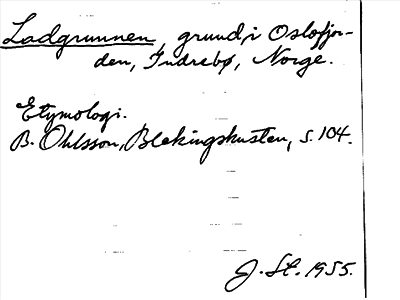 Ladgrunnen, grund i Oslofjor-
den, Indrebø, Norge.
Etymologi.
B. Ohlsson, Blekingskusten, s. 104.
J. St. 1955.